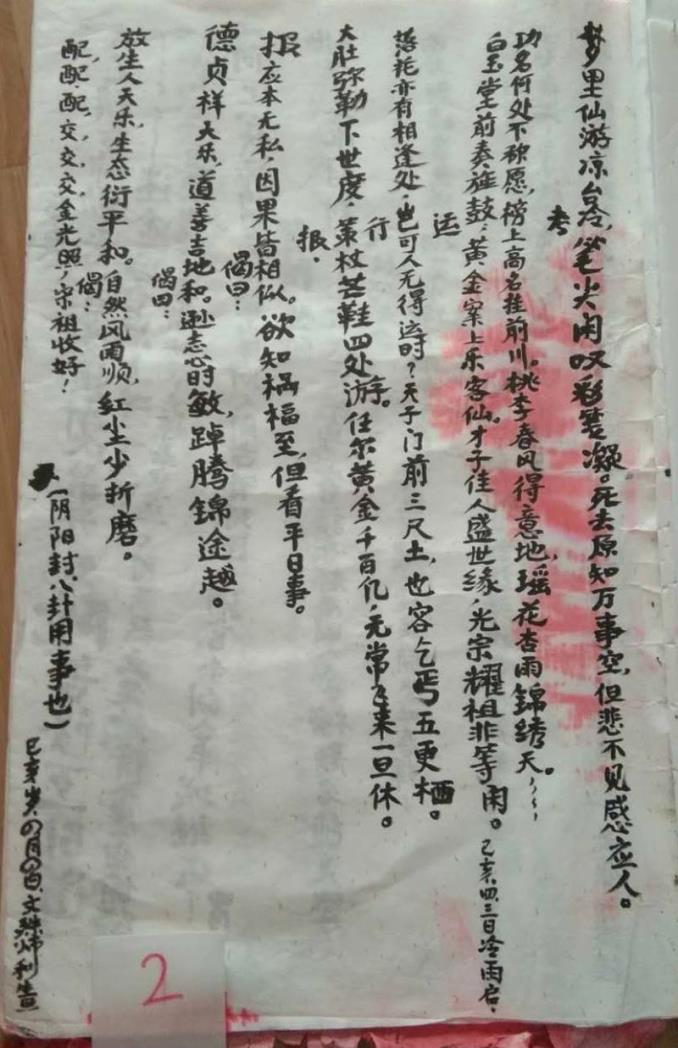 梦里仙游凉台冷,笔尖闲叹彩云凝。死去原知万事空,但悲不见感应人。
考
功名何处不称愿,榜上高名挂前川。桃李春风得意地,瑶花杏雨锦绣天。
白玉堂前奏旌鼓,黄金案上乐客仙。才子佳人盛世缘,光宗耀祖非等闲。己亥、四、三日冷雨启、
运
落花亦有相逢处,岂可人无得运时?天子门前三尺土,也容乞丐五更栖。
行
大肚弥勒下世度,策杖芒鞋四处游。任尔黄金千百亿,无常来一旦休。
报、
报应本无私,因果皆相似。欲知祸福至,但看平日事。
偈曰:
德贞祥天乐,道善吉地和。逊志心时敏,踔腾锦途越。
偈曰:
放生人天乐,生态衍平和。自然风雨顺,红尘少折磨。
偈:
配,配,配,交,交,交,金光照,宗祖收好!
(阴阳封、八卦用事也)
己亥岁、四月四日、文殊师利造
2